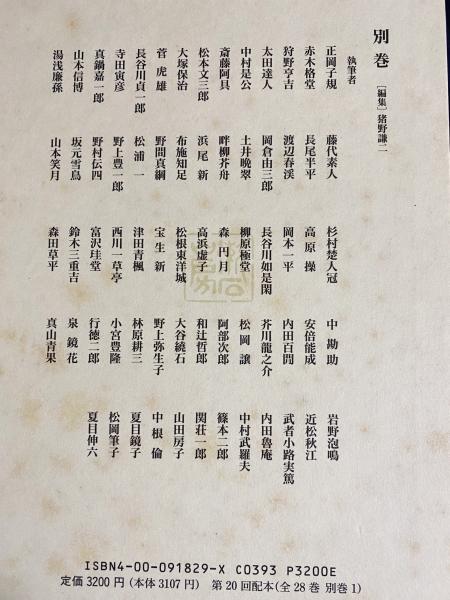 別巻 [編集]猪野謙二
執筆者
正岡子規
赤木格堂
狩野亨吉
太田達人
中村是公
斎藤阿具
松本文三郎
大塚保治
菅 虎雄
長谷川貞一郎
寺田寅彦
真鍋嘉一郎
山本信博
湯浅廉孫
藤代素人
長尾半平
渡辺春渓
岡倉由三郎
土井晩翠
畔柳芥舟
浜尾 新
布施知足
野間真綱
松浦 一
野上豊一郎
野村伝四
坂元雪鳥
山本笑月
杉村楚人冠
高原 操
岡本一平
長谷川如是閑
柳原極堂
森 円月
高浜虚子
松根東洋城
宝生 新
津田青楓
西川一草亭
富沢珪堂
鈴木三重吉
森田草平
中 勘助
安倍能成
内田百閒
芥川龍之介
松岡 譲
阿部次郎
和辻哲郎
大谷繞石
野上弥生子
林原耕三
小宮豊隆
行徳二郎
泉 鏡花
真山青果
岩野泡鳴
近松秋江
武者小路実篤
内田魯庵
中村武羅夫
篠本二郎
関荘一郎
山田房子
中根 倫
夏目鏡子
松岡筆子
夏目伸六
ISBN4-00-091829-X C0393 P3200E
定価 3200 円(本体 3107 円) 第 20 回配本(全 28 巻 別巻 1)